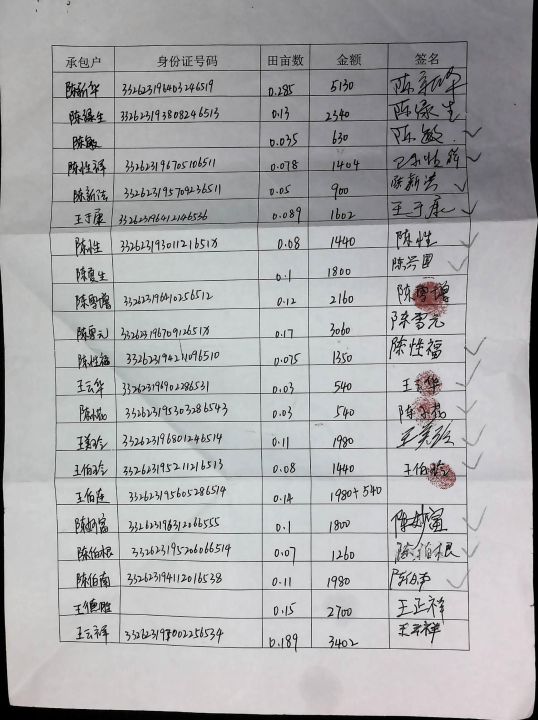 承包户 身份证号码 田亩数 金额 签名
陈新华 332623196403246519 0.285 5130 陈新华
陈绿生 332623193808246513 0.13 2340 陈绿生
陈敏 0.035 630 陈敏
陈性祥 332623196705106511 0.078 1404
陈新法 332623195709236511 0.05 900 陈新法
王于康 332623196412146536 0.089 1602 王于康
陈性 33262319301121651X 0.08 1440 陈性
陈夏生 0.1 1800 陈兴国
陈雪增 332623196410256512 0.12 2160 陈雪增
陈雪元 33262319670912651X 0.17 3060 陈雪元
陈性福 332623194211096510 0.075 1350 陈性福
王云华 332623196902286531 0.03 540 王云华
陈小茲 332623195303286543 0.03 540 陈小茲
王美玲 332623196801246514 0.11 1980 王美玲
王伯玲 332623195211216513 0.08 1440 王伯玲
王伯莲 332623195605286514 0.14 1980+540
陈妙富 332623196312066555 0.1 1800 陈妙富
陈伯根 332623195206066514 0.07 1260 陈伯根
陈伯南 332623194112016538 0.11 1980 陈伯南
王德胜 0.15 2700 王正祥
王云祥 332623197002256534 0.189 3402 王云祥